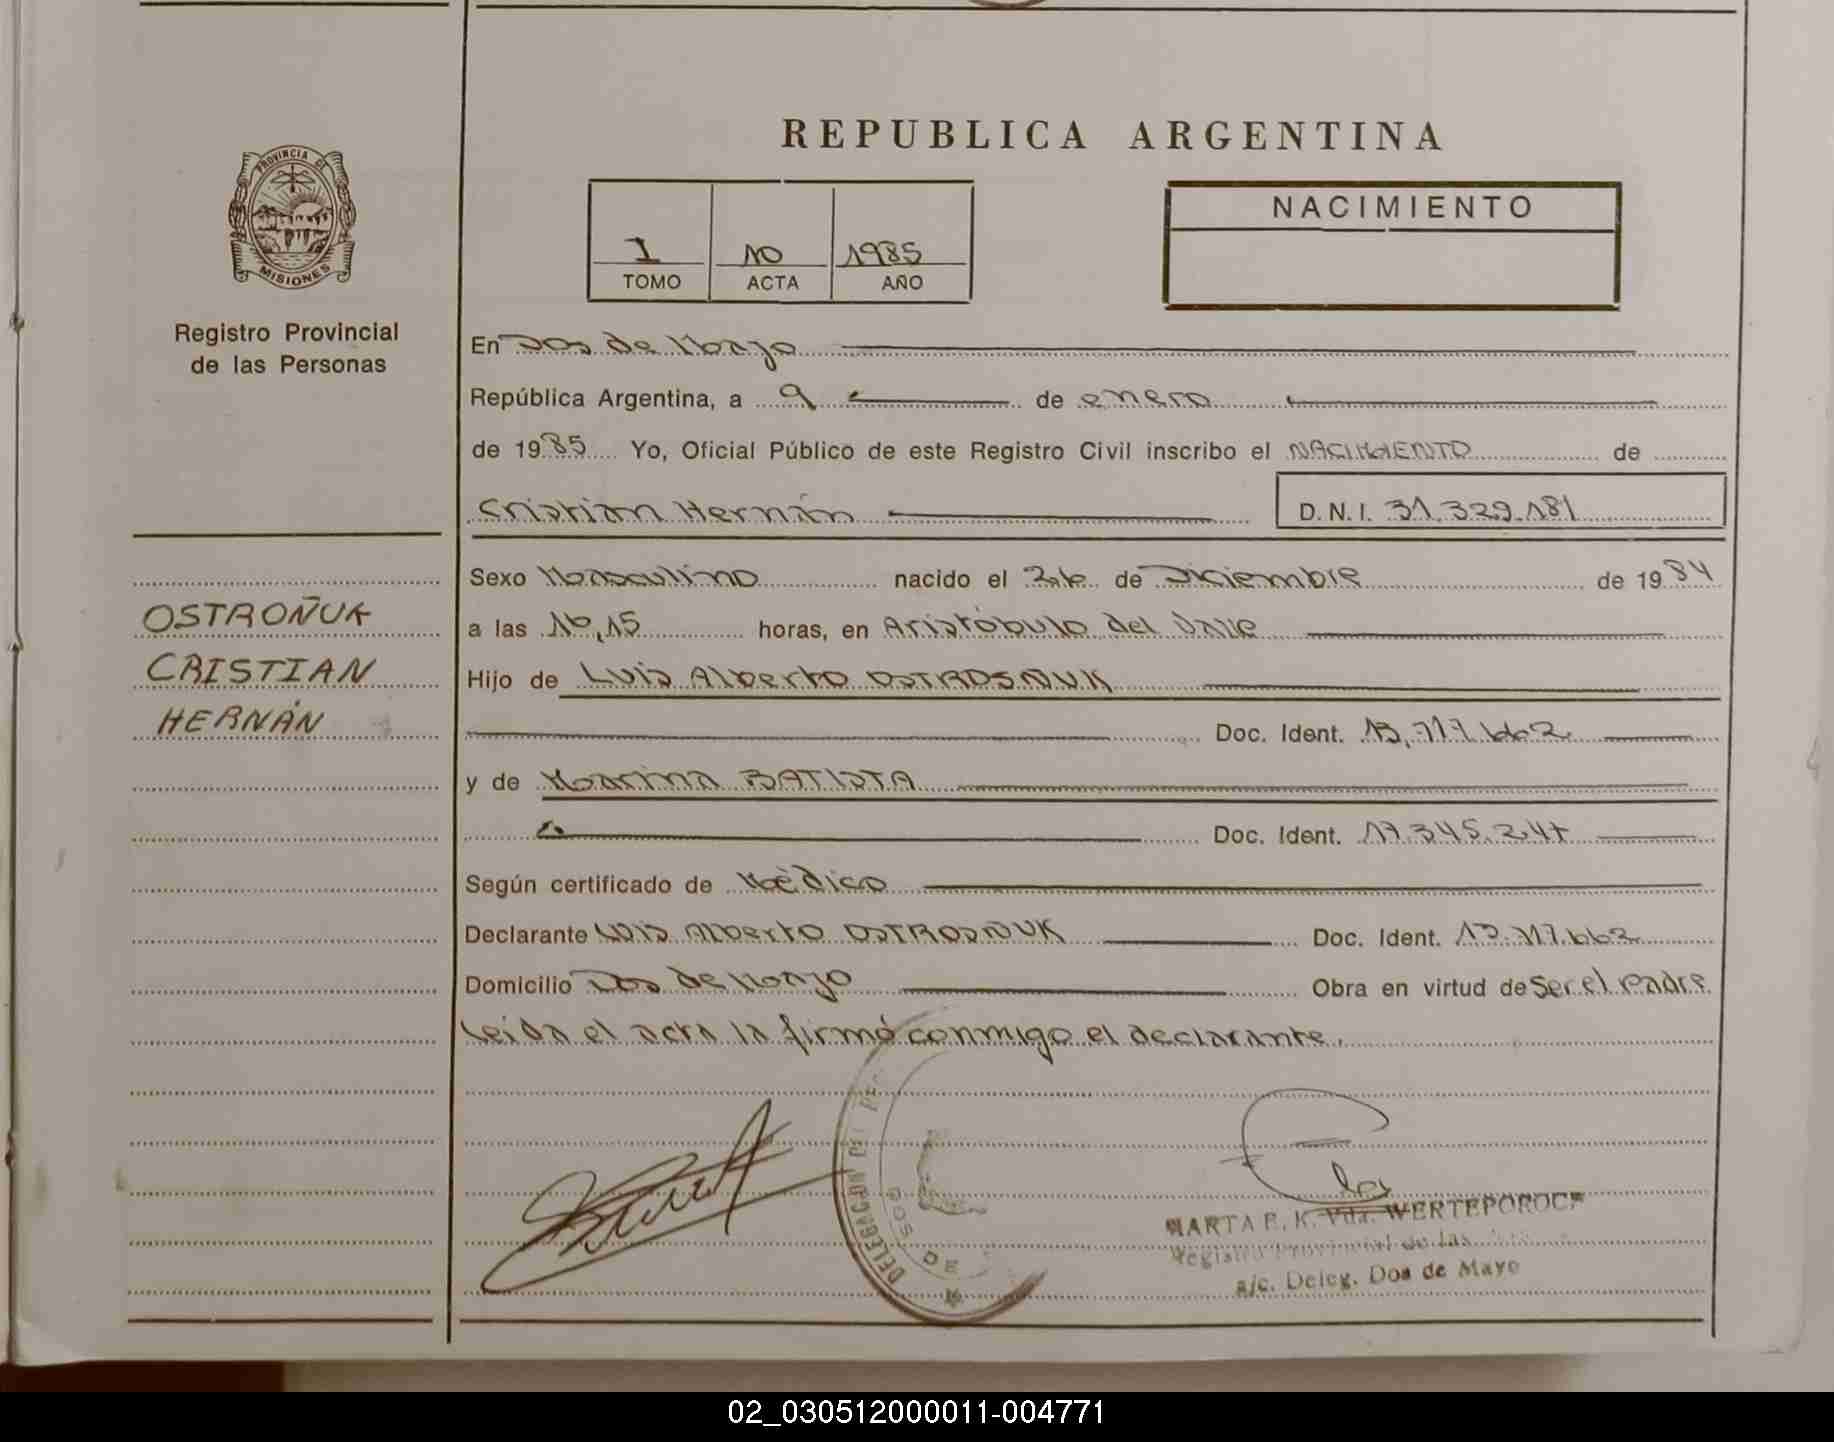 REPUBLICA ARGENTINA
PROVINCIA DE
MISIONES
Registro Provincial
de las Personas
I 10 1985
TOMO ACTA AÑO
NACIMIENTO
En Dos de Mayo
República Argentina, a 9 de enero
de 1985 Yo, Oficial Público de este Registro Civil inscribo el NACIMIENTO de
Cristian Hernán D.N.I. 31.329.181
OSTROÑUK
CRISTIAN
HERNÁN
Sexo Masculino nacido el 26 de Diciembre de 1984
a las 16,15 horas, en Aristóbulo del Valle
Hijo de Luis Alberto OSTROSÑUK
Doc. Ident. 13.717.662
y de Marina BATISTA
Doc. Ident. 17.345.247
Según certificado de Médico
Declarante Luis Alberto OSTROSÑUK Doc. Ident. 13.717.662
Domicilio Dos de Mayo Obra en virtud de Ser el padre
Leida el acta la firmó conmigo el declarante.
DELEGACION DEL
DOS DE
MARTA E. K. Vda. WERTEPOROCH
Registro Provincial de las
a/c. Deleg. Dos de Mayo
02_030512000011-004771